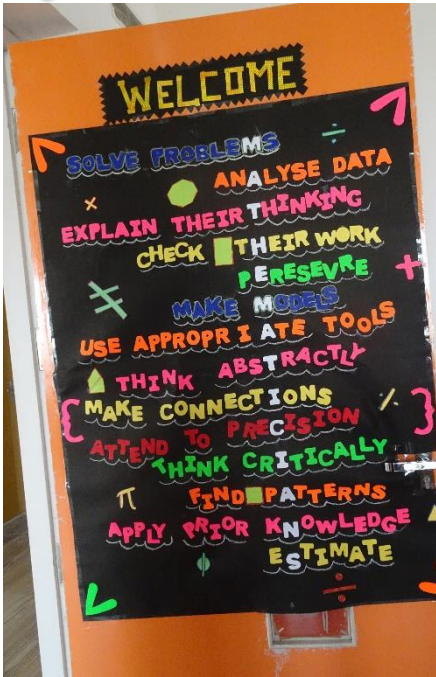 WELCOME
SOLVE PROBLEMS
ANALYSE DATA
EXPLAIN THEIR THINKING
CHECK THEIR WORK
PERESEVRE
MAKE MODELS
USE APPROPRIATE TOOLS
THINK ABSTRACTLY
MAKE CONNECTIONS
ATTEND TO PRECISION
THINK CRITICALLY
FIND PATTERNS
APPLY PRIOR KNOWLEDGE
ESTIMATE